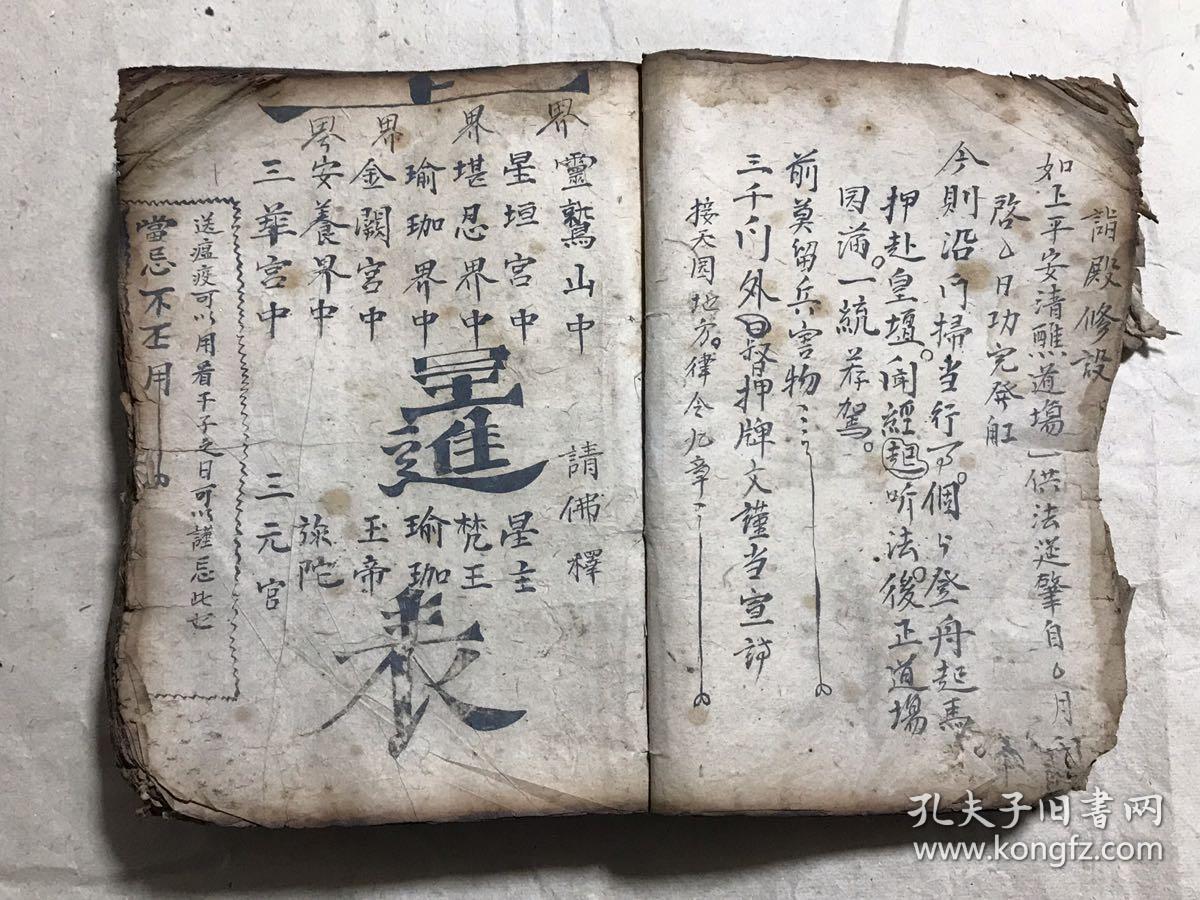 詣殿修設
如上平安清醮道場一供法送肇自ム月
啓ム日功完發舡
今則沿门掃当行事。個个登舟起馬。
押赴皇壇。闻經起听法。後正道場
园蒲。一統荐駕。
前莫留兵害物
三千门外曰督押牌文謹当宣詩
接天园地方。律令九章
界靈鷲山中 請佛釋
星垣宮中 星主
界堪忍界中 梵王
瑜珈界中 瑜珈
界金闕宮中 玉帝
界安養界中 弥陀
三華宮中 三元官
進表
送瘟疫可以用看千子之日可以謹忌此也
當忌不在用
孔夫子旧书网
www.kongfz.com